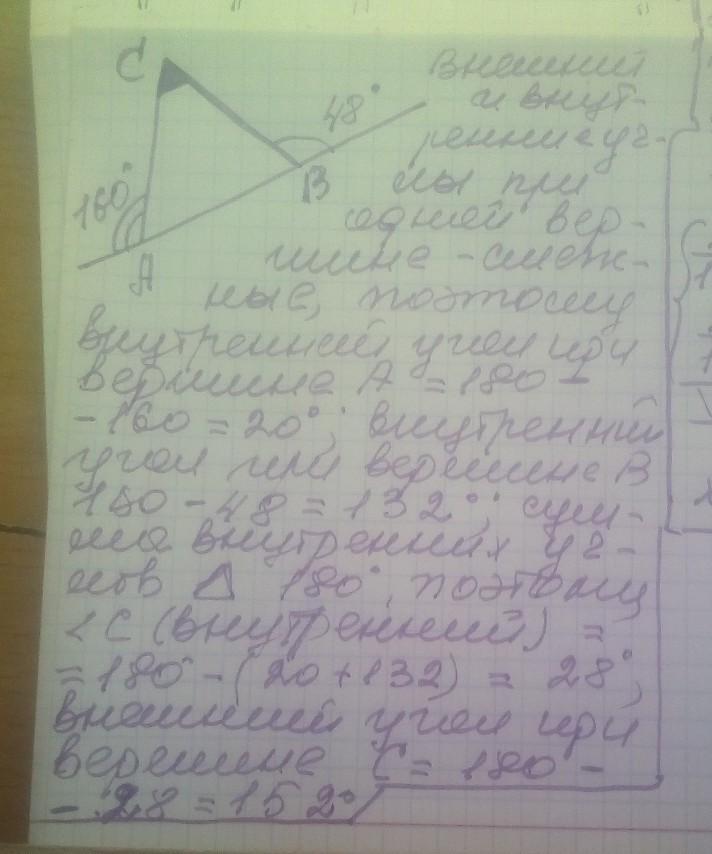 C
внешний
48°
и внут-
ренние уг-
160°
B
лы при
одной вер-
A
шине - смеж-
ные, поэтому
внутренний угол при
вершине A = 180 -
- 160 = 20°; внутренний
угол при вершине B
180 - 48 = 132°; сум-
ма внутренних уг-
лов Δ 180°, поэтому
< C (внутренний) =
= 180° - (20 + 132) = 28°,
внешний угол при
вершине C = 180 -
- 28 = 152°